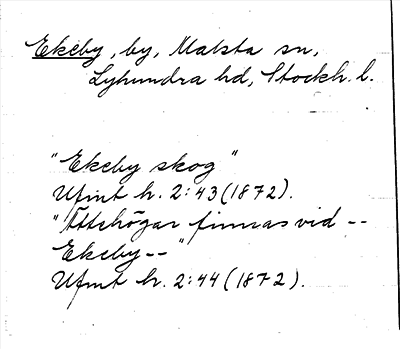 Ekeby, by, Malsta sn,
Lyhundra hd, Stockh. l.
"Ekeby skog"
Ufmt h. 2:43 (1872).
"Ättehögar finnas vid --
Ekeby -- "
Ufmt h. 2:44 (1872).